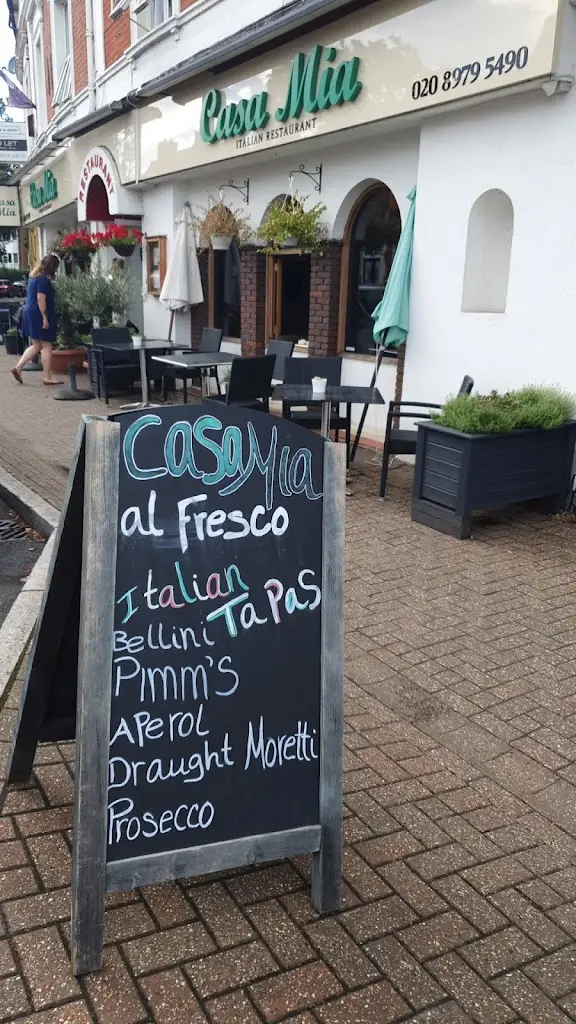 Casa Mia
ITALIAN RESTAURANT
020 8979 5490
RESTAURANT
Casa Mia
Casa
Mia
LET
CASA Mia
al Fresco
Italian
TaPas
Bellini
PImm's
APerol
Draught Moretti
Prosecco